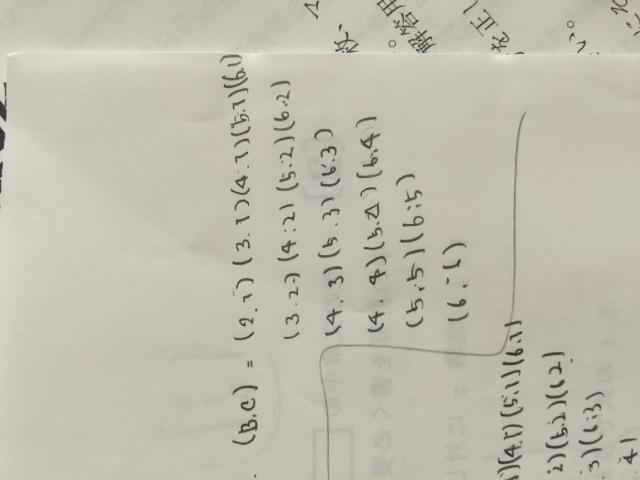 (B.C) = (2.1) (3.1)(4.1)(5.1)(6.1)
(3.2) (4.2) (5.2)(6.2)
(4.3)(5.3)(6.3)
(4.4)(5.4)(6.4)
(5.5)(6.5)
(6.6)
)(4.1)(5.1)(6.1)
2)(5.2)(6.2)
3)(6.3)
4)
解答用
を正し